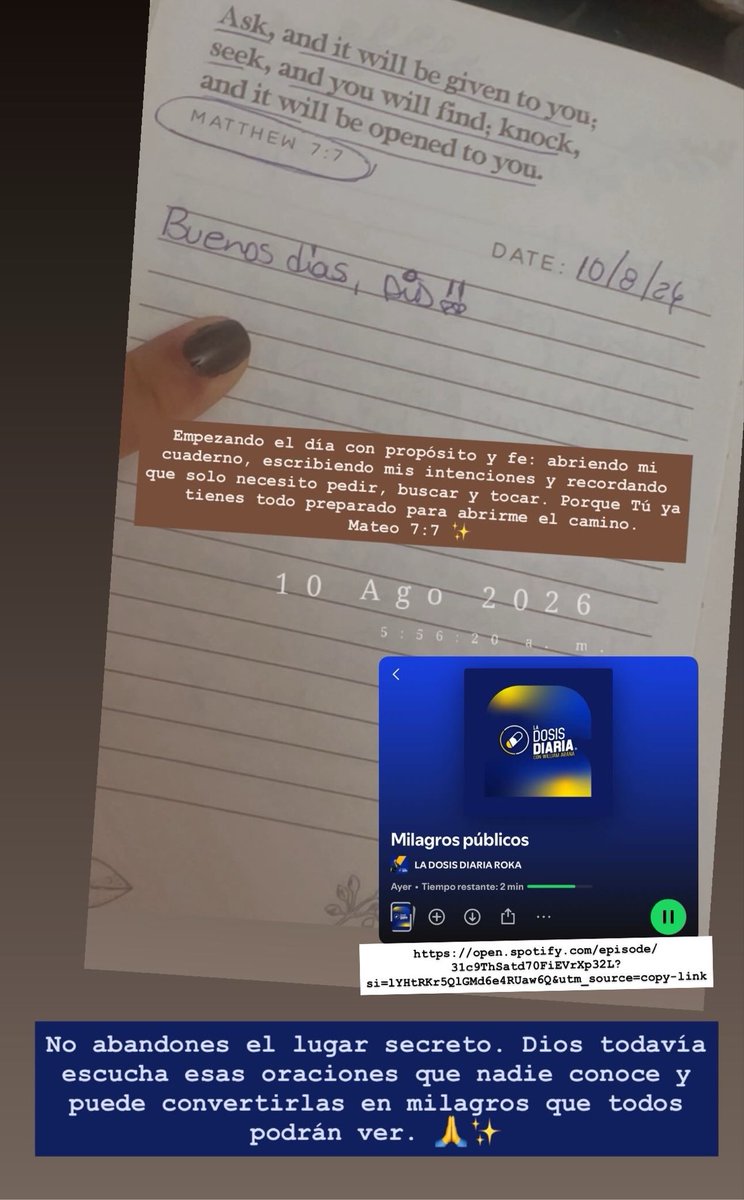 Ask, and it will be given to you;
seek, and you will find; knock,
and it will be opened to you.
MATTHEW 7:7
DATE: 10/8/26
Buenos días,
Empezando el día con propósito y fe: abriendo mi
cuaderno, escribiendo mis intenciones y recordando
que solo necesito pedir, buscar y tocar. Porque Tú ya
tienes todo preparado para abrirme el camino.
Mateo 7:7 ✨
10 Ago 2026
5:56:20 a. m.
LA
DOSIS
DIARIA
CON WILLIAM ARANA
Milagros públicos
LA DOSIS DIARIA ROKA
Ayer • Tiempo restante: 2 min
https://open.spotify.com/episode/
31c9ThSatd70FiEVrXp32L?
si=lYHtRKr5QlGMd6e4RUaw6Q&utm_source=copy-link
No abandones el lugar secreto. Dios todavía
escucha esas oraciones que nadie conoce y
puede convertirlas en milagros que todos
podrán ver. 🙏✨